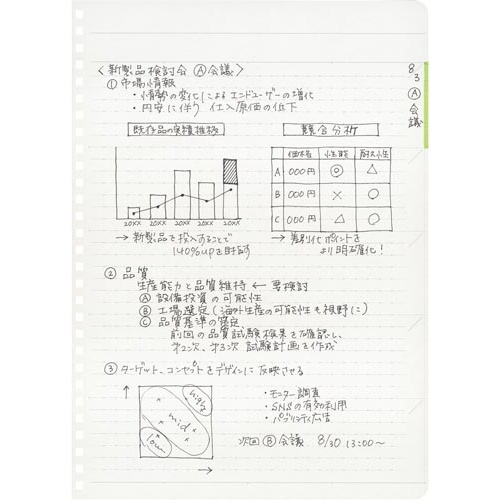 〈新製品検討会 Ⓐ会議〉
8/3 Ⓐ会議
① 市場情報
・情勢の変化によるエンドユーザーの増化
・円安に伴り 仕入原価の低下
既存品の実績推移
20XX 20XX 20XX 20XX 20XX
→ 新製品を投入することで
140%upを目指す
競合分析
価格 性能 耐久性
A 000円 ◎ △
B 000円 × ○
C 000円 △ ○
→ 差別化ポイントを
より明確化!
② 品質
生産能力と品質維持 ← 要検討
Ⓐ 設備投資の可能性
Ⓑ 工場選定(海外生産の可能性も視野に)
Ⓒ 品質基準の策定
前回の品質試験結果を確認し、
第2次、第3次 試験計画を作成
③ ターゲット、コンセプトをデザインに反映させる
high
mid
low
・モニター調査
・SNSの有効利用
・パブリシティ広告
次回 Ⓑ会議 8/30 13:00〜